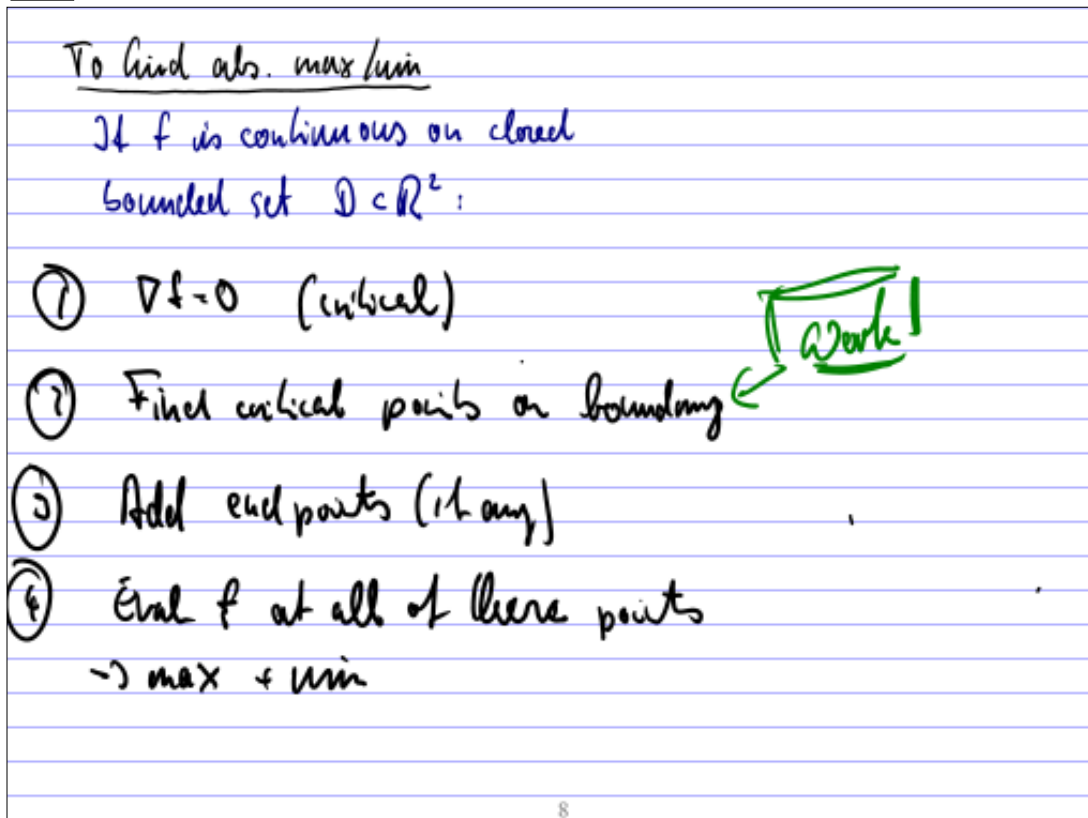 To find abs. max/min
If f is continuous on closed
bounded set D ⊂ ℝ² :
① ∇f=0 (critical)
Work!
② Find critical points on boundary
③ Add end points (if any)
④ Eval f at all of these points
→ max + min
8